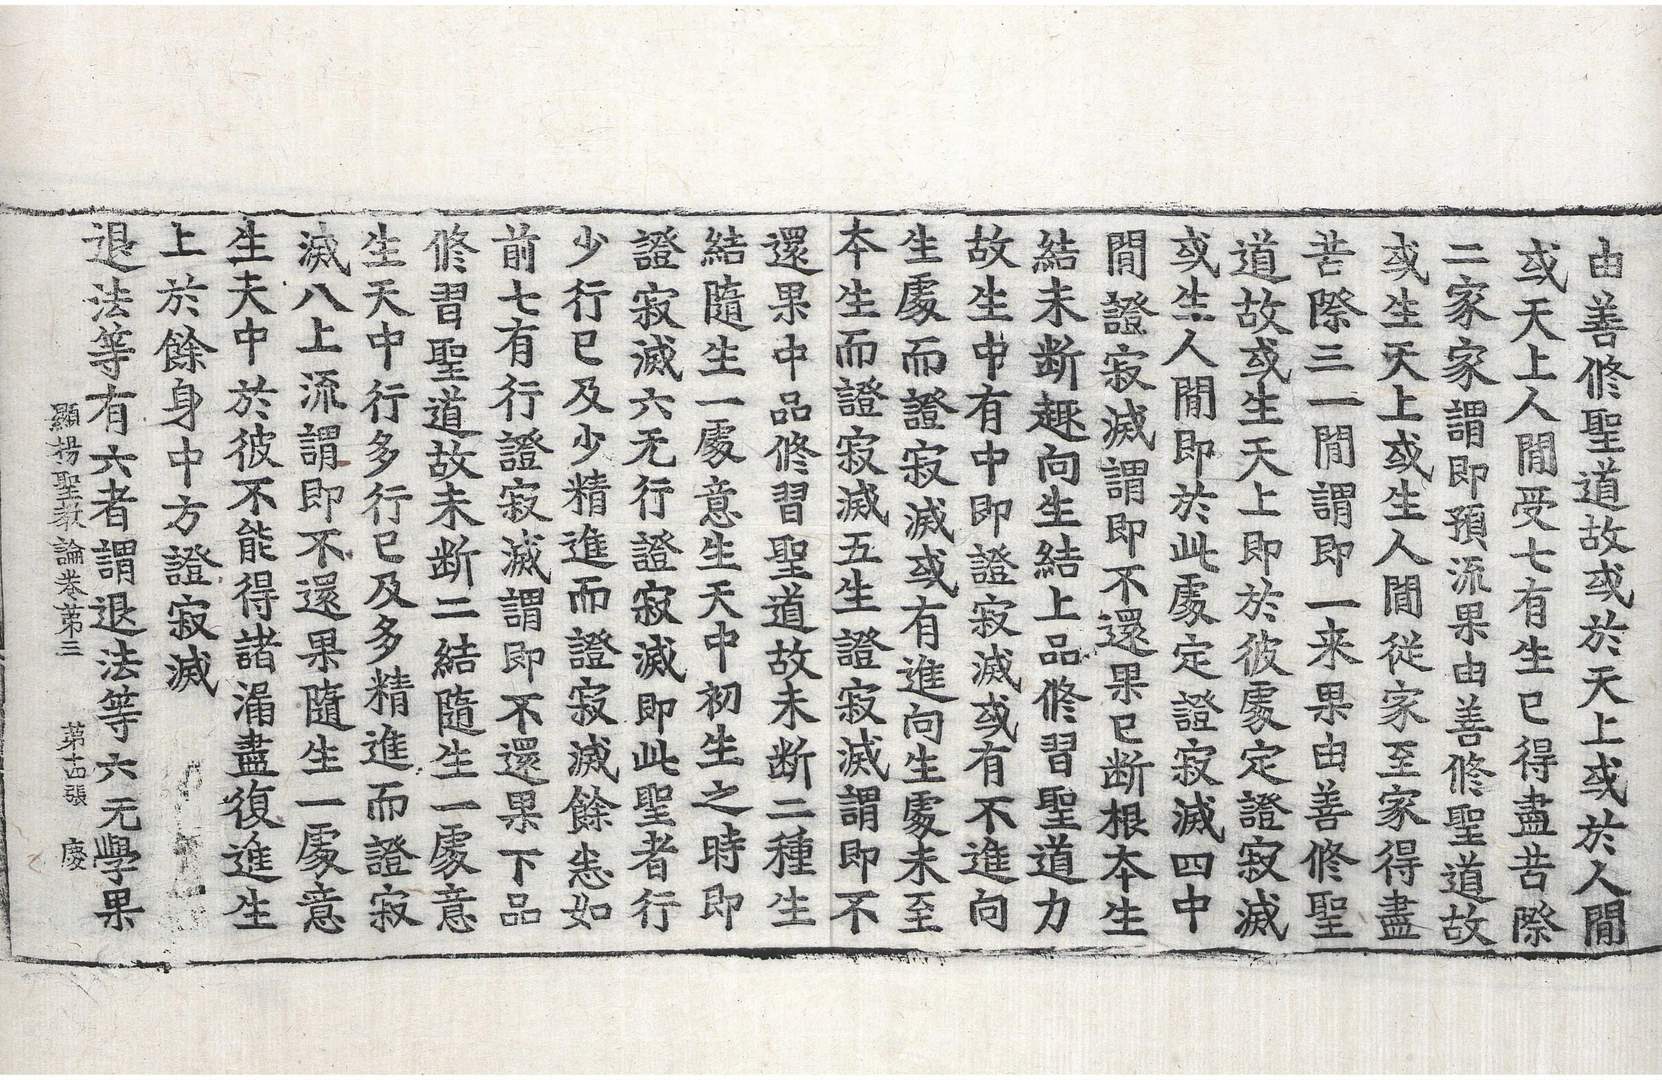 由善修聖道故或於天上或於人閒
或天上人閒受七有生已得盡苦際
二家家謂即預流果由善修聖道故
或生天上或生人閒從家至家得盡
苦際三一閒謂即一来果由善修聖
道故或生天上即於彼處定證寂滅
或生人閒即於此處定證寂滅四中
閒證寂滅謂即不還果已斷根本生
結未断趣向生結上品修習聖道力
故生中有中即證寂滅或有不進向
生處而證寂滅或有進向生處未至
本生而證寂滅五生證寂滅謂即不
還果中品修習聖道故未断二種生
結隨生一處意生天中初生之時即
證寂滅六无行證寂滅即此聖者行
少行已及少精進而證寂滅餘悉如
前七有行證寂滅謂即不還果下品
修習聖道故未断二結隨生一處意
生天中行多行已及多精進而證寂
滅八上流謂即不還果隨生一處意
生天中於彼不能得諸漏盡復進生
上於餘身中方證寂滅
退法等有六者謂退法等六无學果
顯揚聖教論卷第三 第十四張 慶